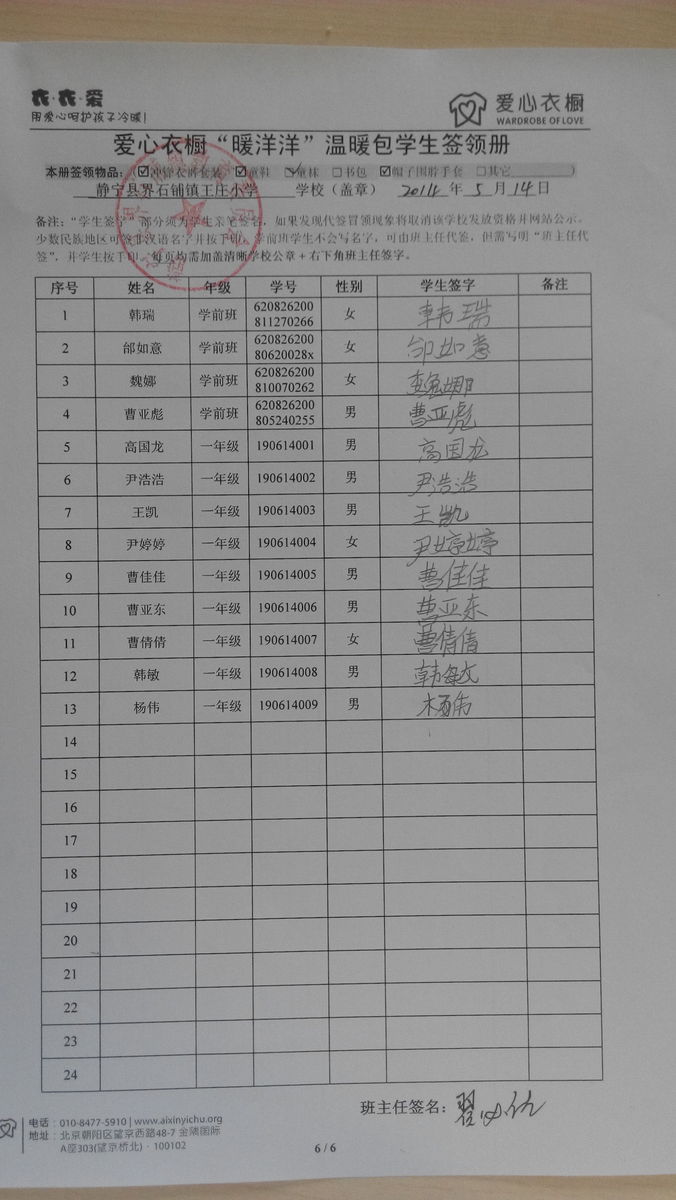 衣·衣·爱
用爱心呵护孩子冷暖!
爱心衣橱
WARDROBE OF LOVE
爱心衣橱“暖洋洋”温暖包学生签领册
本册签领物品：(☑冲锋衣裤套装 ☑童鞋 ☑童袜 □书包 ☑帽子围脖手套 □其它 )
静宁县界石铺镇王庄小学 学校（盖章） 2014 年 5 月 14 日
备注：“学生签字”部分须为学生亲笔签名，如果发现代签冒领现象将取消该学校发放资格并网站公示。
少数民族地区可签非汉语名字并按手印，学前班学生不会写名字，可由班主任代签，但需写明“班主任代
签”，并学生按手印。每页均需加盖清晰学校公章+右下角班主任签字。
序号 姓名 年级 学号 性别 学生签字 备注
1 韩瑞 学前班 620826200811270266 女 韩瑞
2 邰如意 学前班 62082620080620028x 女 邰如意
3 魏娜 学前班 620826200810070262 女 魏娜
4 曹亚彪 学前班 620826200805240255 男 曹亚彪
5 高国龙 一年级 190614001 男 高国龙
6 尹浩浩 一年级 190614002 男 尹浩浩
7 王凯 一年级 190614003 男 王凯
8 尹婷婷 一年级 190614004 女 尹婷婷
9 曹佳佳 一年级 190614005 男 曹佳佳
10 曹亚东 一年级 190614006 男 曹亚东
11 曹倩倩 一年级 190614007 女 曹倩倩
12 韩敏 一年级 190614008 男 韩敏
13 杨伟 一年级 190614009 男 杨伟
14
15
16
17
18
19
20
21
22
23
24
班主任签名：
电话：010-8477-5910 | www.aixinyichu.org
地址：北京朝阳区望京西路48-7 金隅国际
A座303(望京桥北)·100102
6 / 6